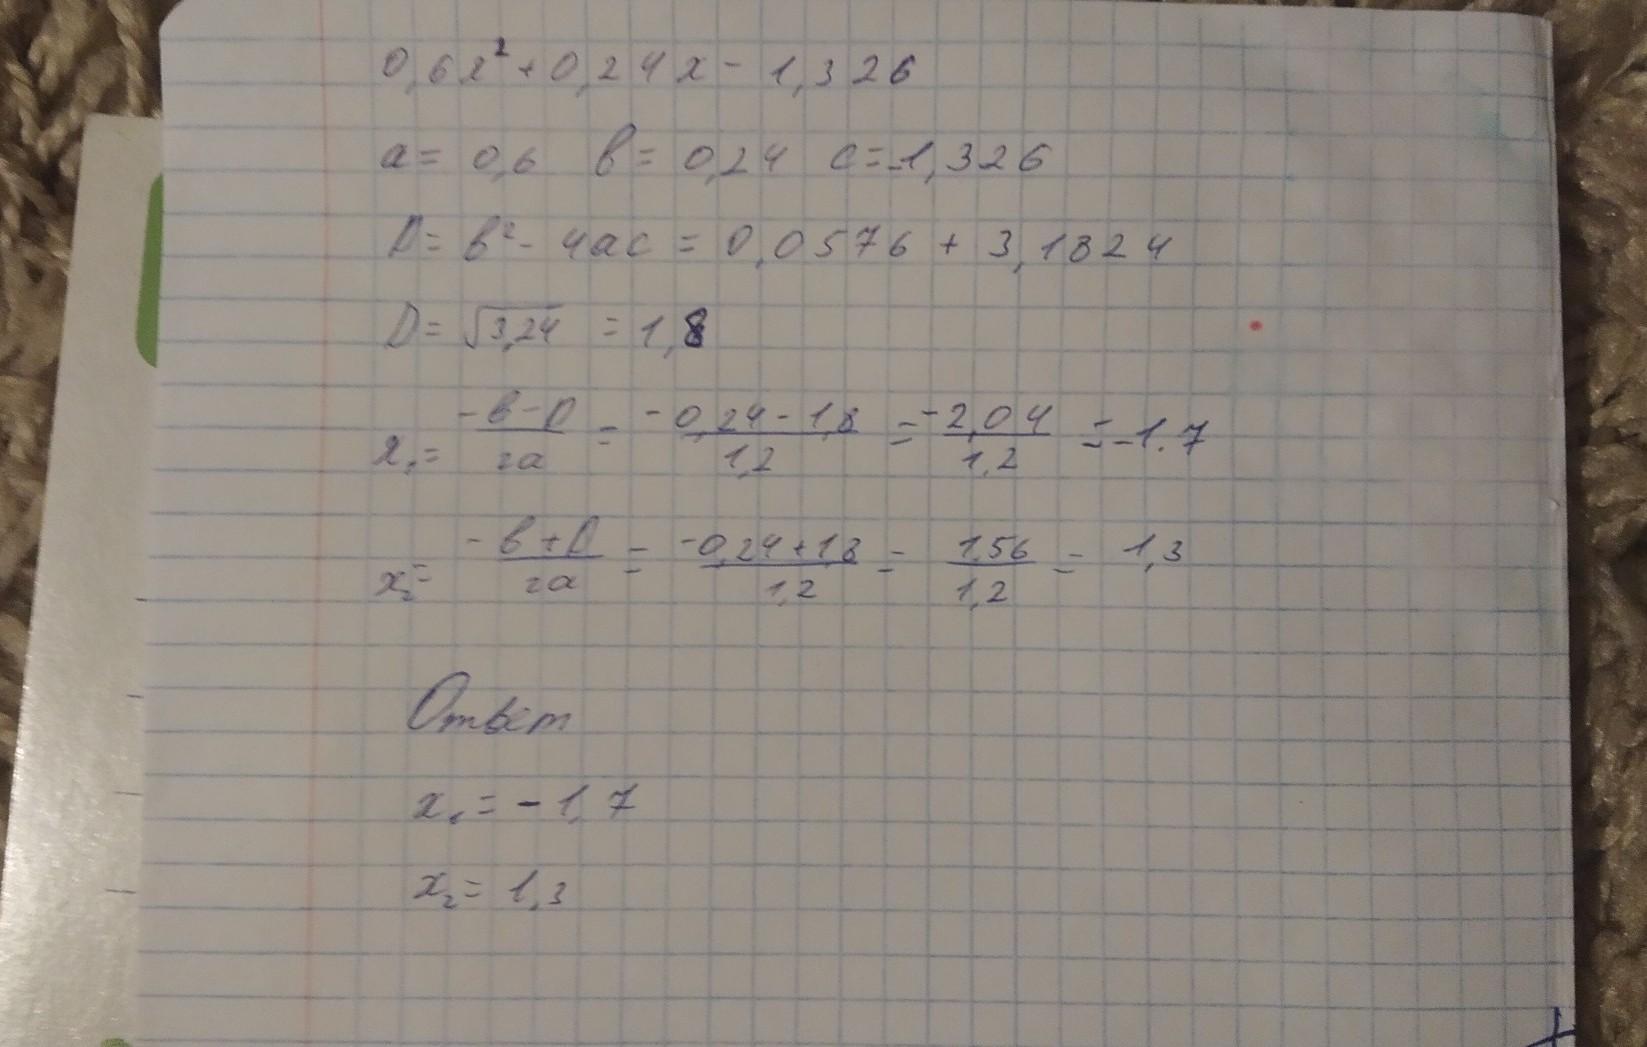 0,6x²+0,24x - 1,326
a = 0,6 в = 0,24 c = -1,326
D = в² - 4ac = 0,0576 + 3,1824
D = √3,24 = 1,8
x₁ = (-в-D)/2a = (-0,24-1,8)/1,2 = -2,04/1,2 = -1.7
x₂ = (-в+D)/2a = (-0,24+1,8)/1,2 = 1,56/1,2 = 1,3
Ответ
x₁ = -1,7
x₂ = 1,3